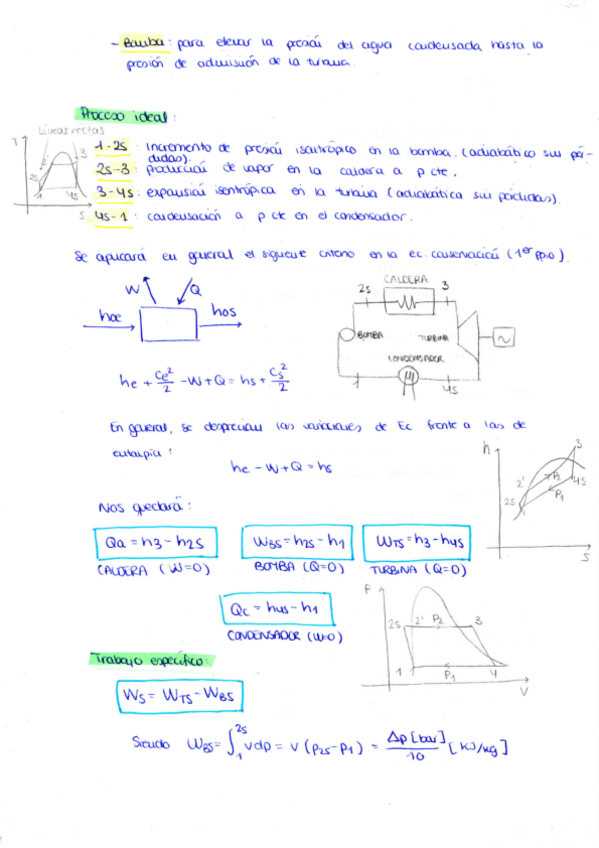 - Bomba: para elevar la presión del agua condensada hasta la
presión de admisión de la turbina.
Proceso ideal:
Líneas rectas
T
2'
3
2s
1
4s
S
1-2s : incremento de presión isentrópico en la bomba. (adiabático sin pér-
didas).
2s-3 : producción de vapor en la caldera a p cte.
3-4s : expansión isentrópica en la turbina (adiabática sin pérdidas).
4s-1 : condensación a p cte en el condensador.
Se aplicará en general el siguiente criterio en la ec. conservación (1er ppio).
W
Q
hoe
hos
CALDERA
2s
3
BOMBA
TURBINA
CONDENSADOR
1
4s
he + Ce²/2 - W + Q = hs + Cs²/2
En general, se desprecian las variaciones de Ec frente a las de
entalpía:
he - W + Q = hs
h
3
2'
P2
4s
2s
P1
1
S
Nos quedará:
Qa = h3 - h2s
WBS = h2s - h1
WTS = h3 - h4s
CALDERA (W=0)
BOMBA (Q=0)
TURBINA (Q=0)
Qc = h4s - h1
CONDENSADOR (W=0)
P
2s
2'
P2
3
1
P1
4
V
Trabajo específico:
Ws = WTS - WBS
Siendo WBS = ∫₁²ˢ vdp = v (p2s - p1) = Δp [bar]/10 [kJ/kg]